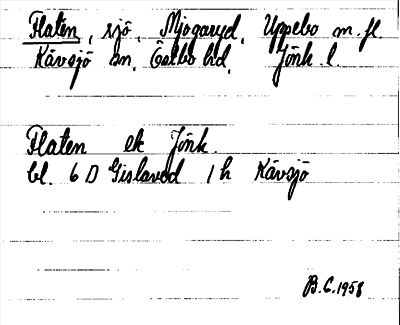 Flaten, sjö, Mjogaryd, Uppebo m. fl.
Kävsjö sn, Östbo hd, Jönk. l.
Flaten ek Jönk.
bl. 6 D Gislaved 1 h Kävsjö
B.C. 1958